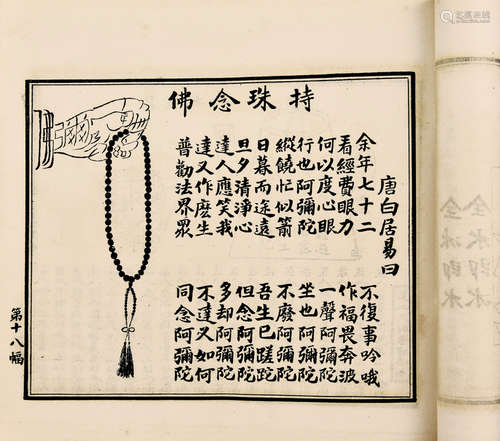 持珠念佛
唐白居易曰
余年七十二 不復事吟哦
看經費眼力 作福畏奔波
何以度心眼 一聲阿彌陀
行也阿彌陀 坐也阿彌陀
縱饒忙似箭 不廢阿彌陀
日暮而途遠 吾生已蹉跎
旦夕清淨心 但念阿彌陀
達人應笑我 多却阿彌陀
達又作麽生 不達又如何
普勸法界眾 同念阿彌陀
彌
第十八幅